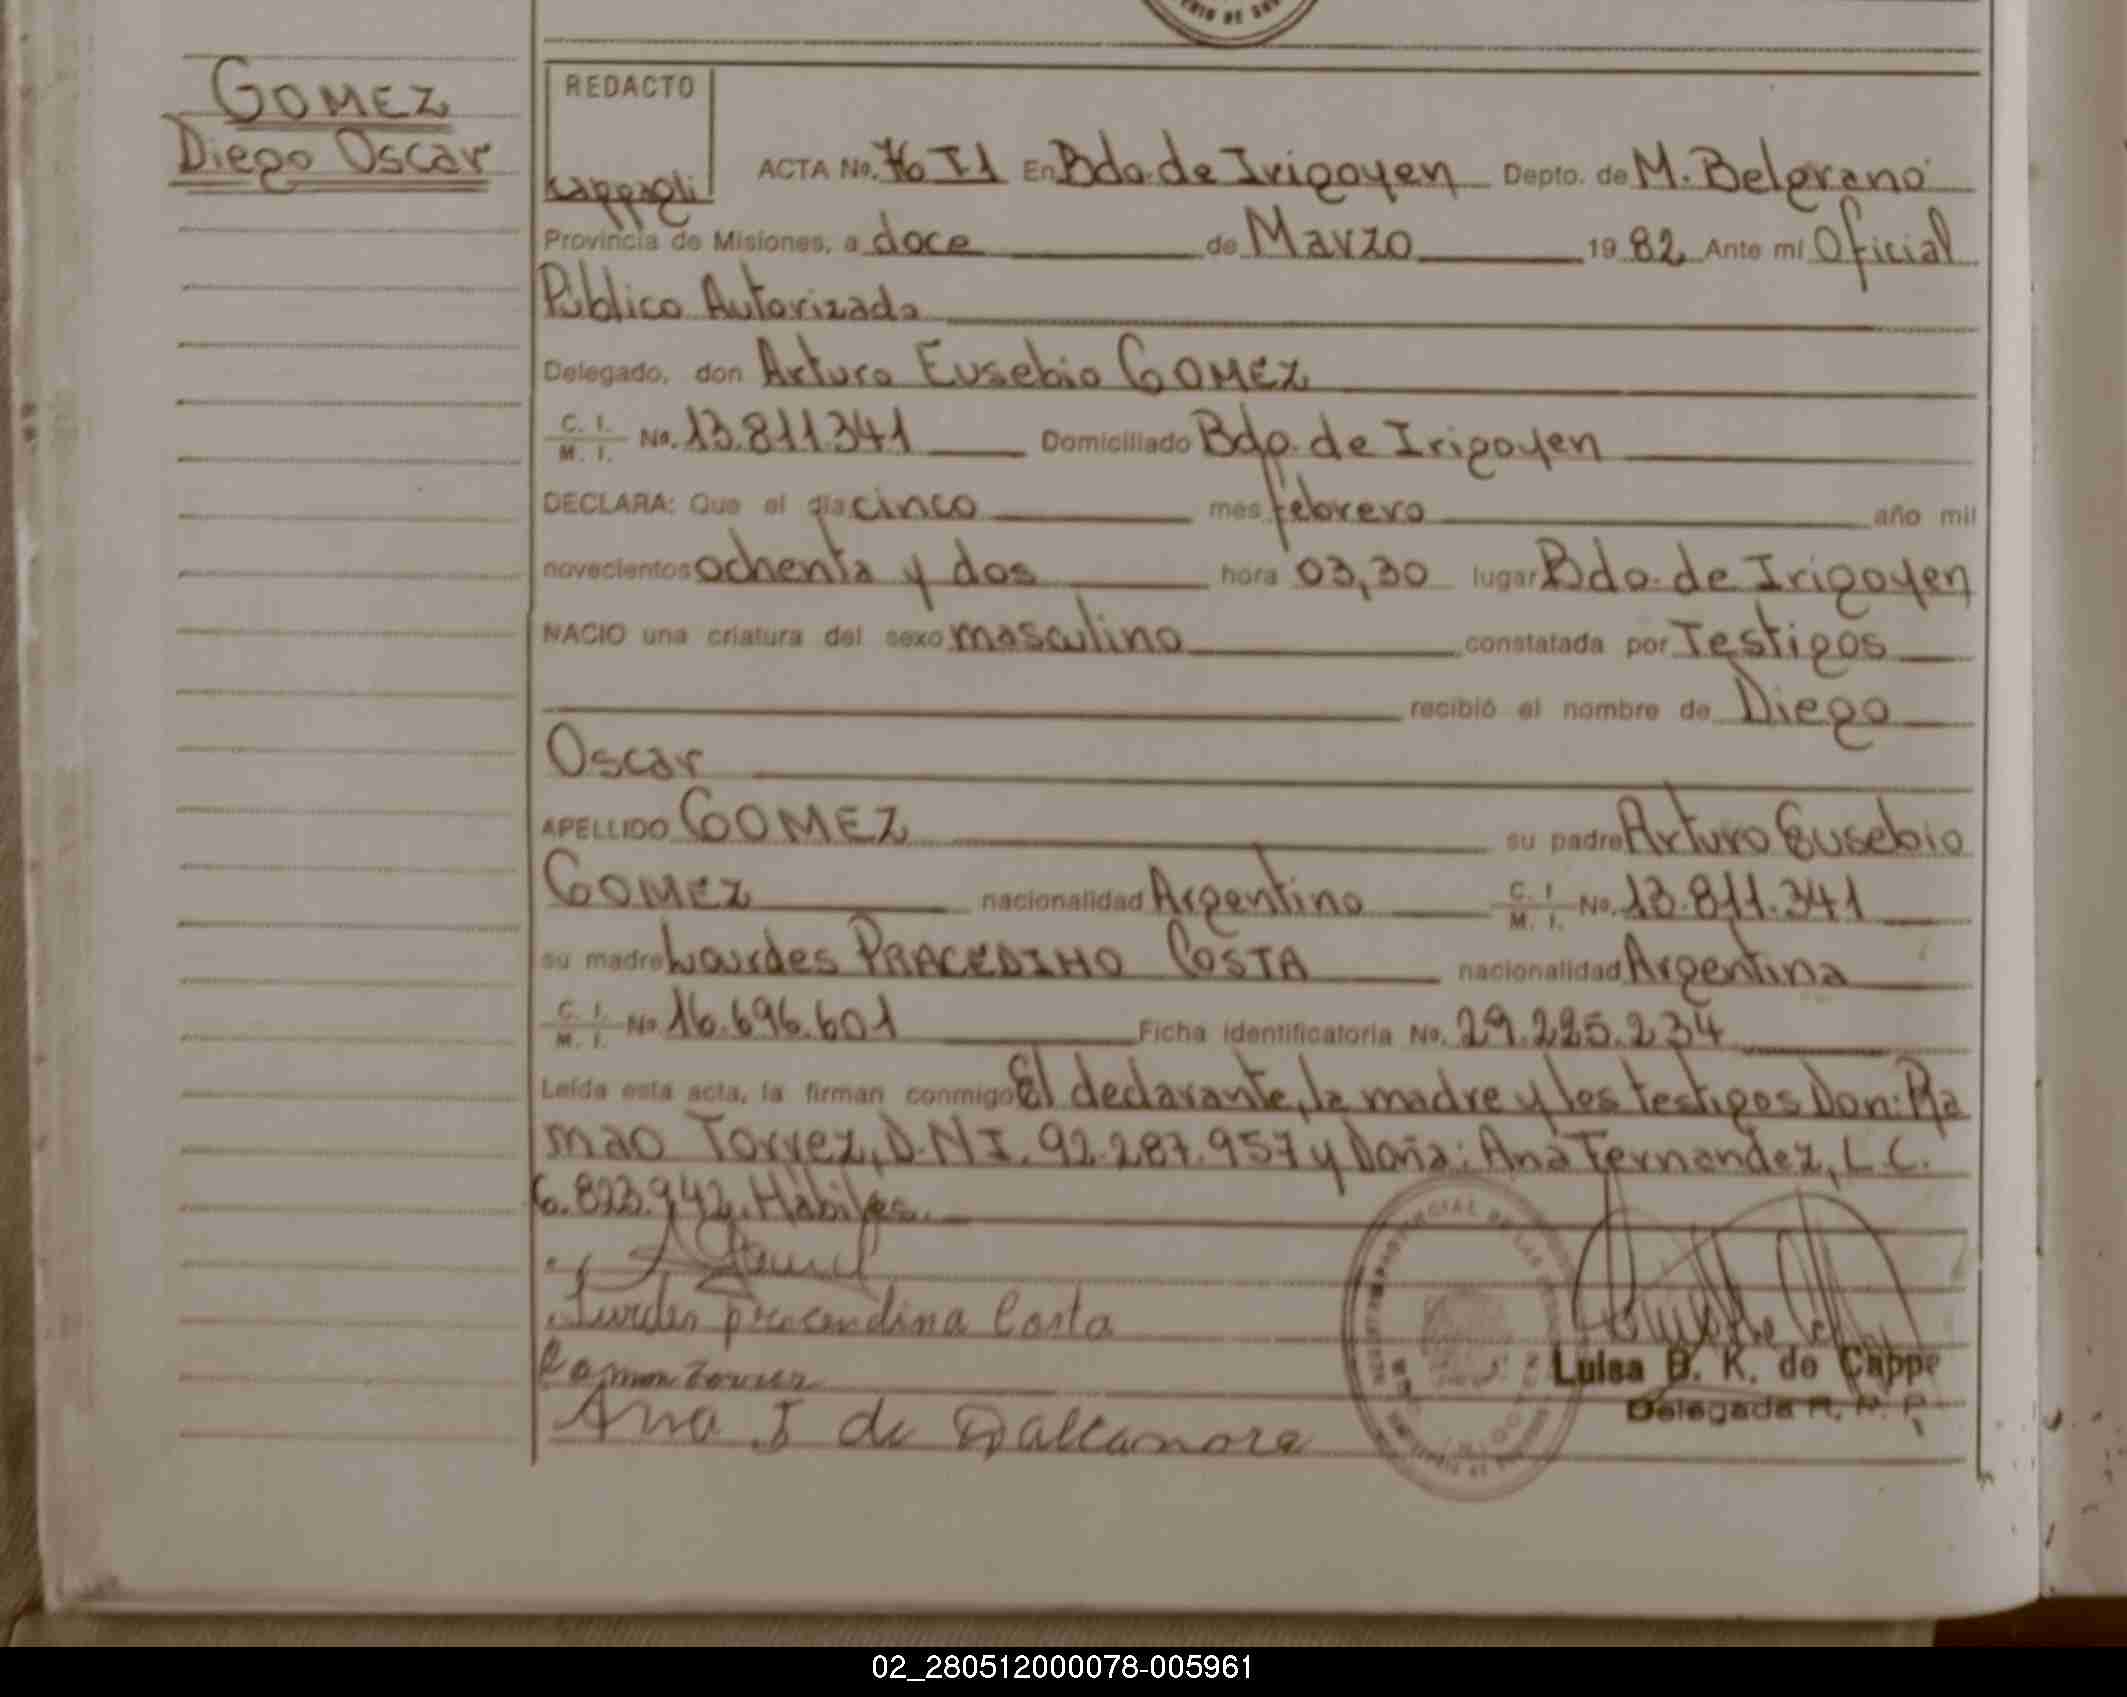 GOMEZ
Diego Oscar
REDACTO
Cappagli
ACTA No. 76 T1 En Bdo. de Irigoyen Depto. de M. Belgrano
Provincia de Misiones, a doce de Marzo 19 82 Ante mí Oficial
Público Autorizado
Delegado, don Arturo Eusebio GOMEZ
C. I.
M. I. No. 13.811.341 Domiciliado Bdo. de Irigoyen
DECLARA: Que el día cinco mes febrero año mil
novecientos ochenta y dos hora 03,30 lugar Bdo. de Irigoyen
NACIO una criatura del sexo masculino constatada por Testigos
recibió el nombre de Diego
Oscar
APELLIDO GOMEZ su padre Arturo Eusebio
GOMEZ nacionalidad Argentino C. I. M. I. No. 13.811.341
su madre Lourdes PRACEDINO COSTA nacionalidad Argentina
C. I.
M. I. No. 16.696.601 Ficha identificatoria No. 29.225.234
Leída esta acta, la firman conmigo El declarante, la madre y los testigos Don: Ra
mao Torrez, D.N.I. 92.287.957 y Doña: Ana Fernandez, L.C.
6.823.942. Hábiles.
Lurdes procendina Costa
Ramon Torrez
Ana F de Dalcanore
Luisa B. K. de Cappe
Delegada R. P. P.
02_280512000078-005961